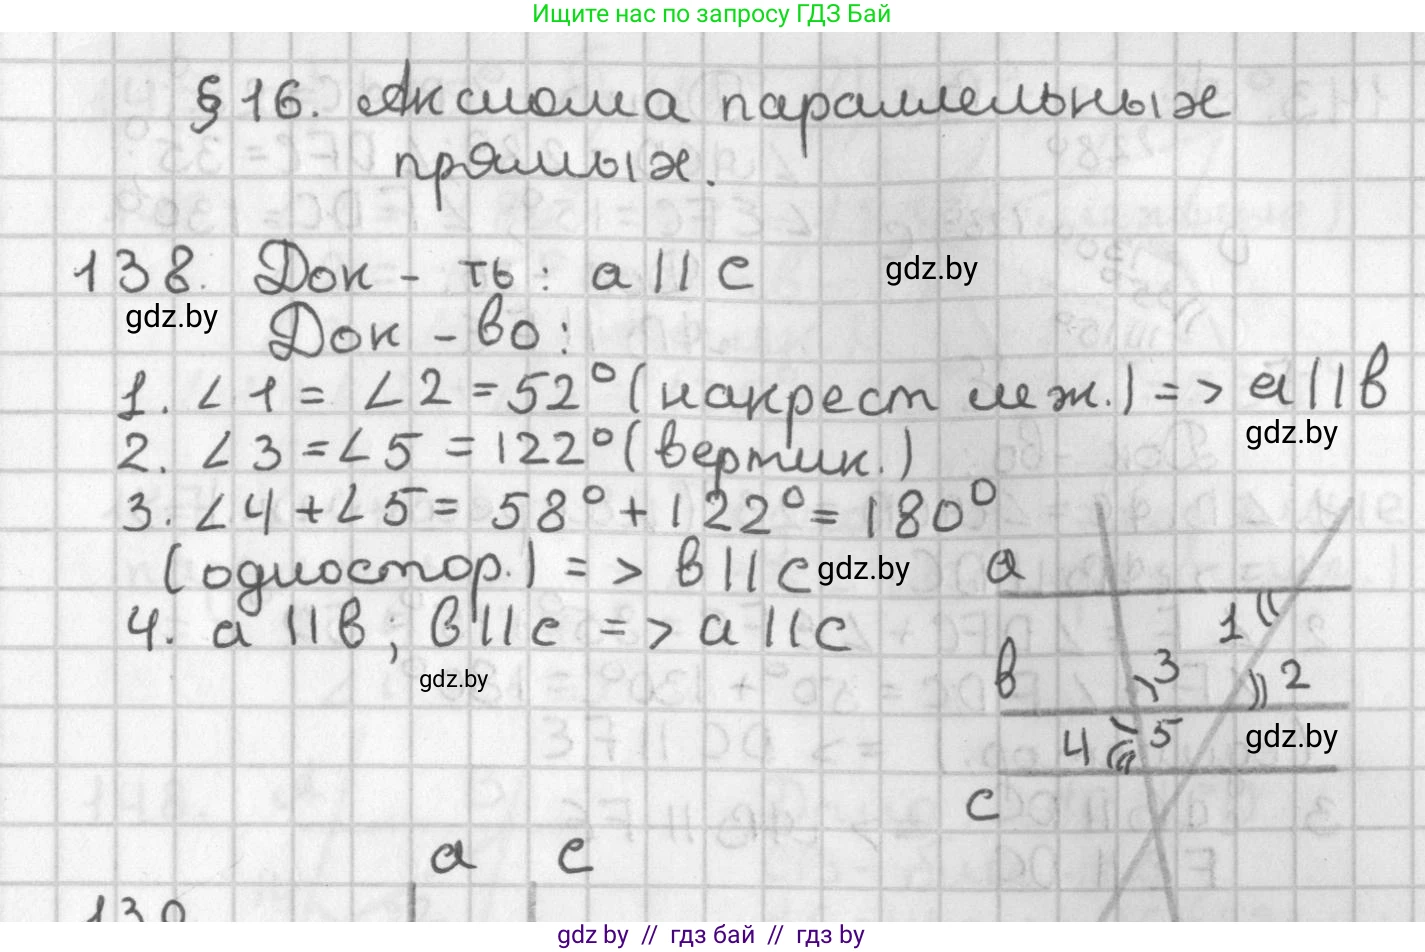 Ищите нас по запросу ГДЗ Бай
§ 16. Аксиома параллельных
прямых.
138. Док - ть: a || c
gdz.by
gdz.by
Док - во:
1. ∠1 = ∠2 = 52° (накрест леж.) => a || b
gdz.by
2. ∠3 = ∠5 = 122° (вертик.)
3. ∠4 + ∠5 = 58° + 122° = 180°
(одностор.) => b || c
gdz.by
a
4. a || b; b || c => a || c
1
gdz.by
b
3
2
4
5
gdz.by
c
a c
139
gdz by // гдз бай // гдз by